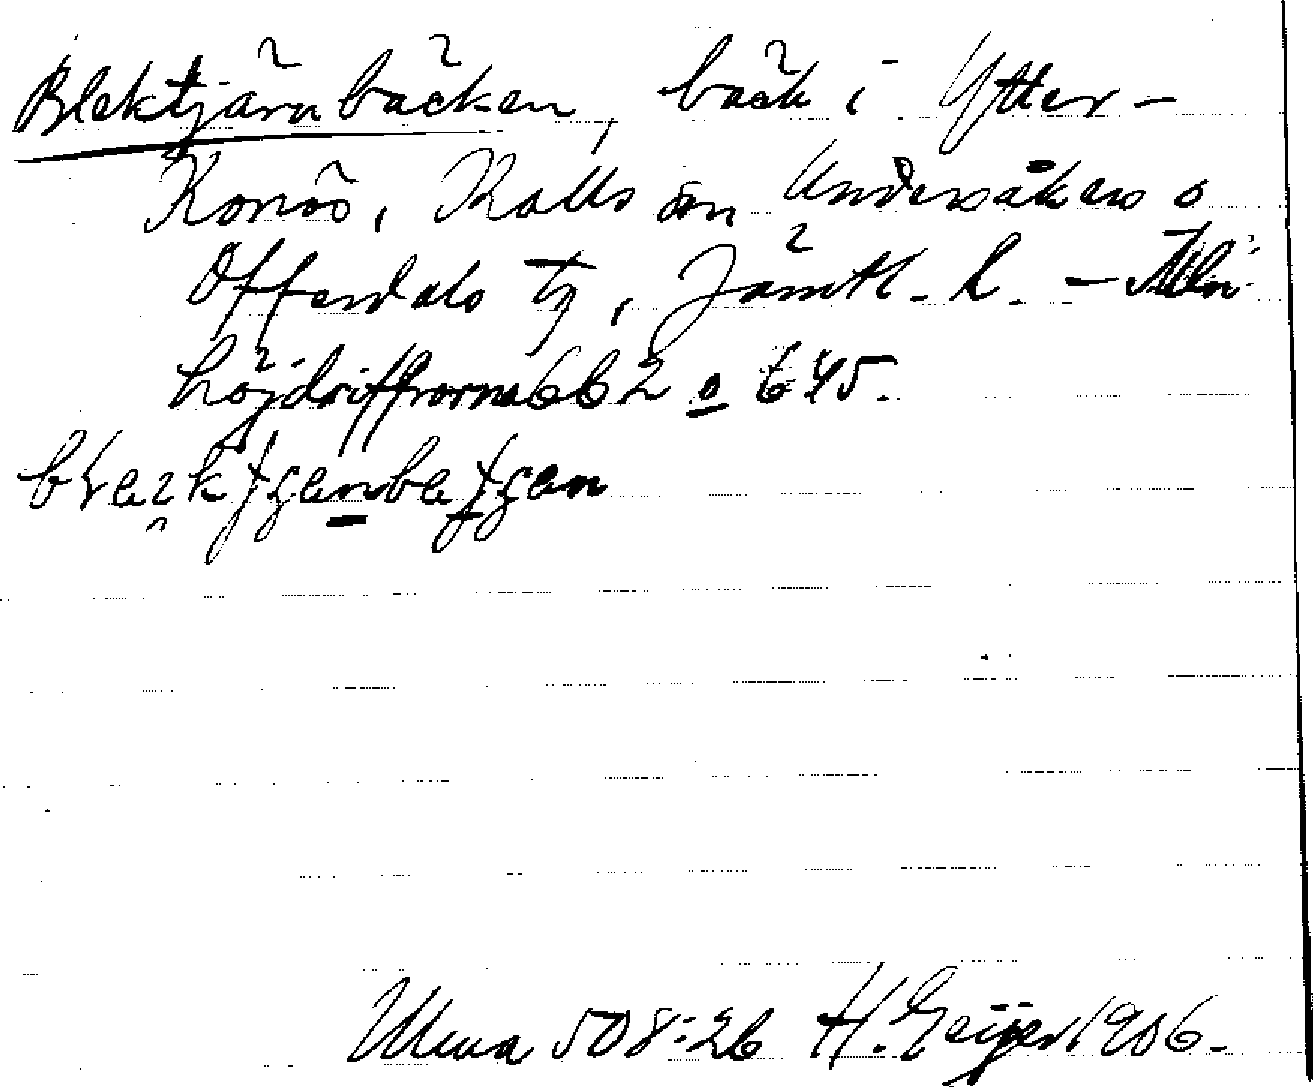 Blektjärnbäcken, bäck i Ytter-
Konäs, Kalls sn, Undersåkers o
Offerdals tg, Jämtl. l. –
höjdsiffrorna 662 o 645.
Ulma 508:26 H. Geijer 1906.